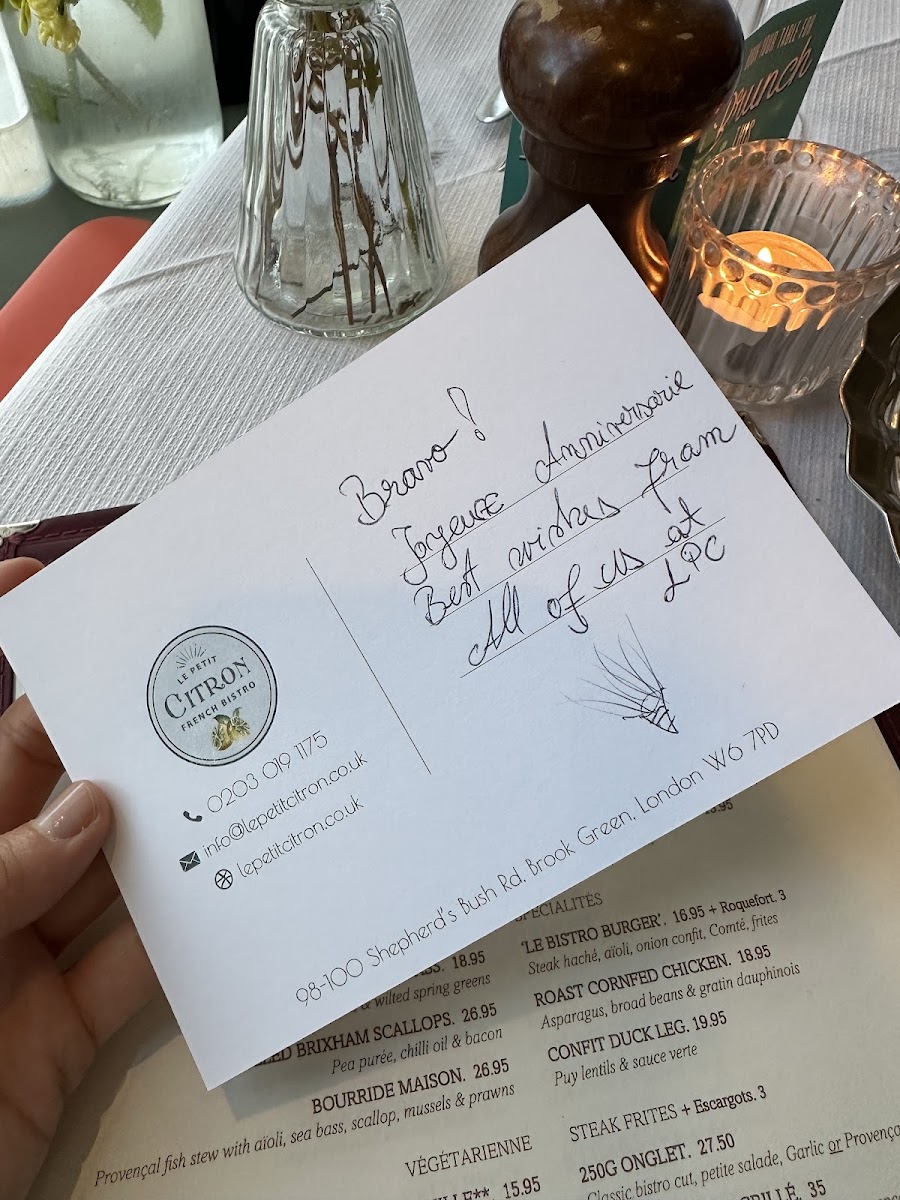 YOUR TABLE FOR
brunch
Bravo!
Joyeuse Anniversarie
Best wishes from
All of us at
LPC
LE PETIT
CITRON
FRENCH BISTRO
0203 019 1175
info@lepetitcitron.co.uk
lepetitcitron.co.uk
98-100 Shepherd's Bush Rd, Brook Green, London W6 7PD
18.95
& wilted spring greens
BRIXHAM SCALLOPS. 26.95
Pea purée, chilli oil & bacon
BOURRIDE MAISON. 26.95
Provençal fish stew with aïoli, sea bass, scallop, mussels & prawns
VÉGÉTARIENNE
15.95
SPÉCIALITÉS
'LE BISTRO BURGER'. 16.95 + Roquefort. 3
Steak haché, aïoli, onion confit, Comté, frites
ROAST CORNFED CHICKEN. 18.95
Asparagus, broad beans & gratin dauphinois
CONFIT DUCK LEG. 19.95
Puy lentils & sauce verte
STEAK FRITES + Escargots. 3
250G ONGLET. 27.50
Classic bistro cut, petite salade, Garlic or Provença
35